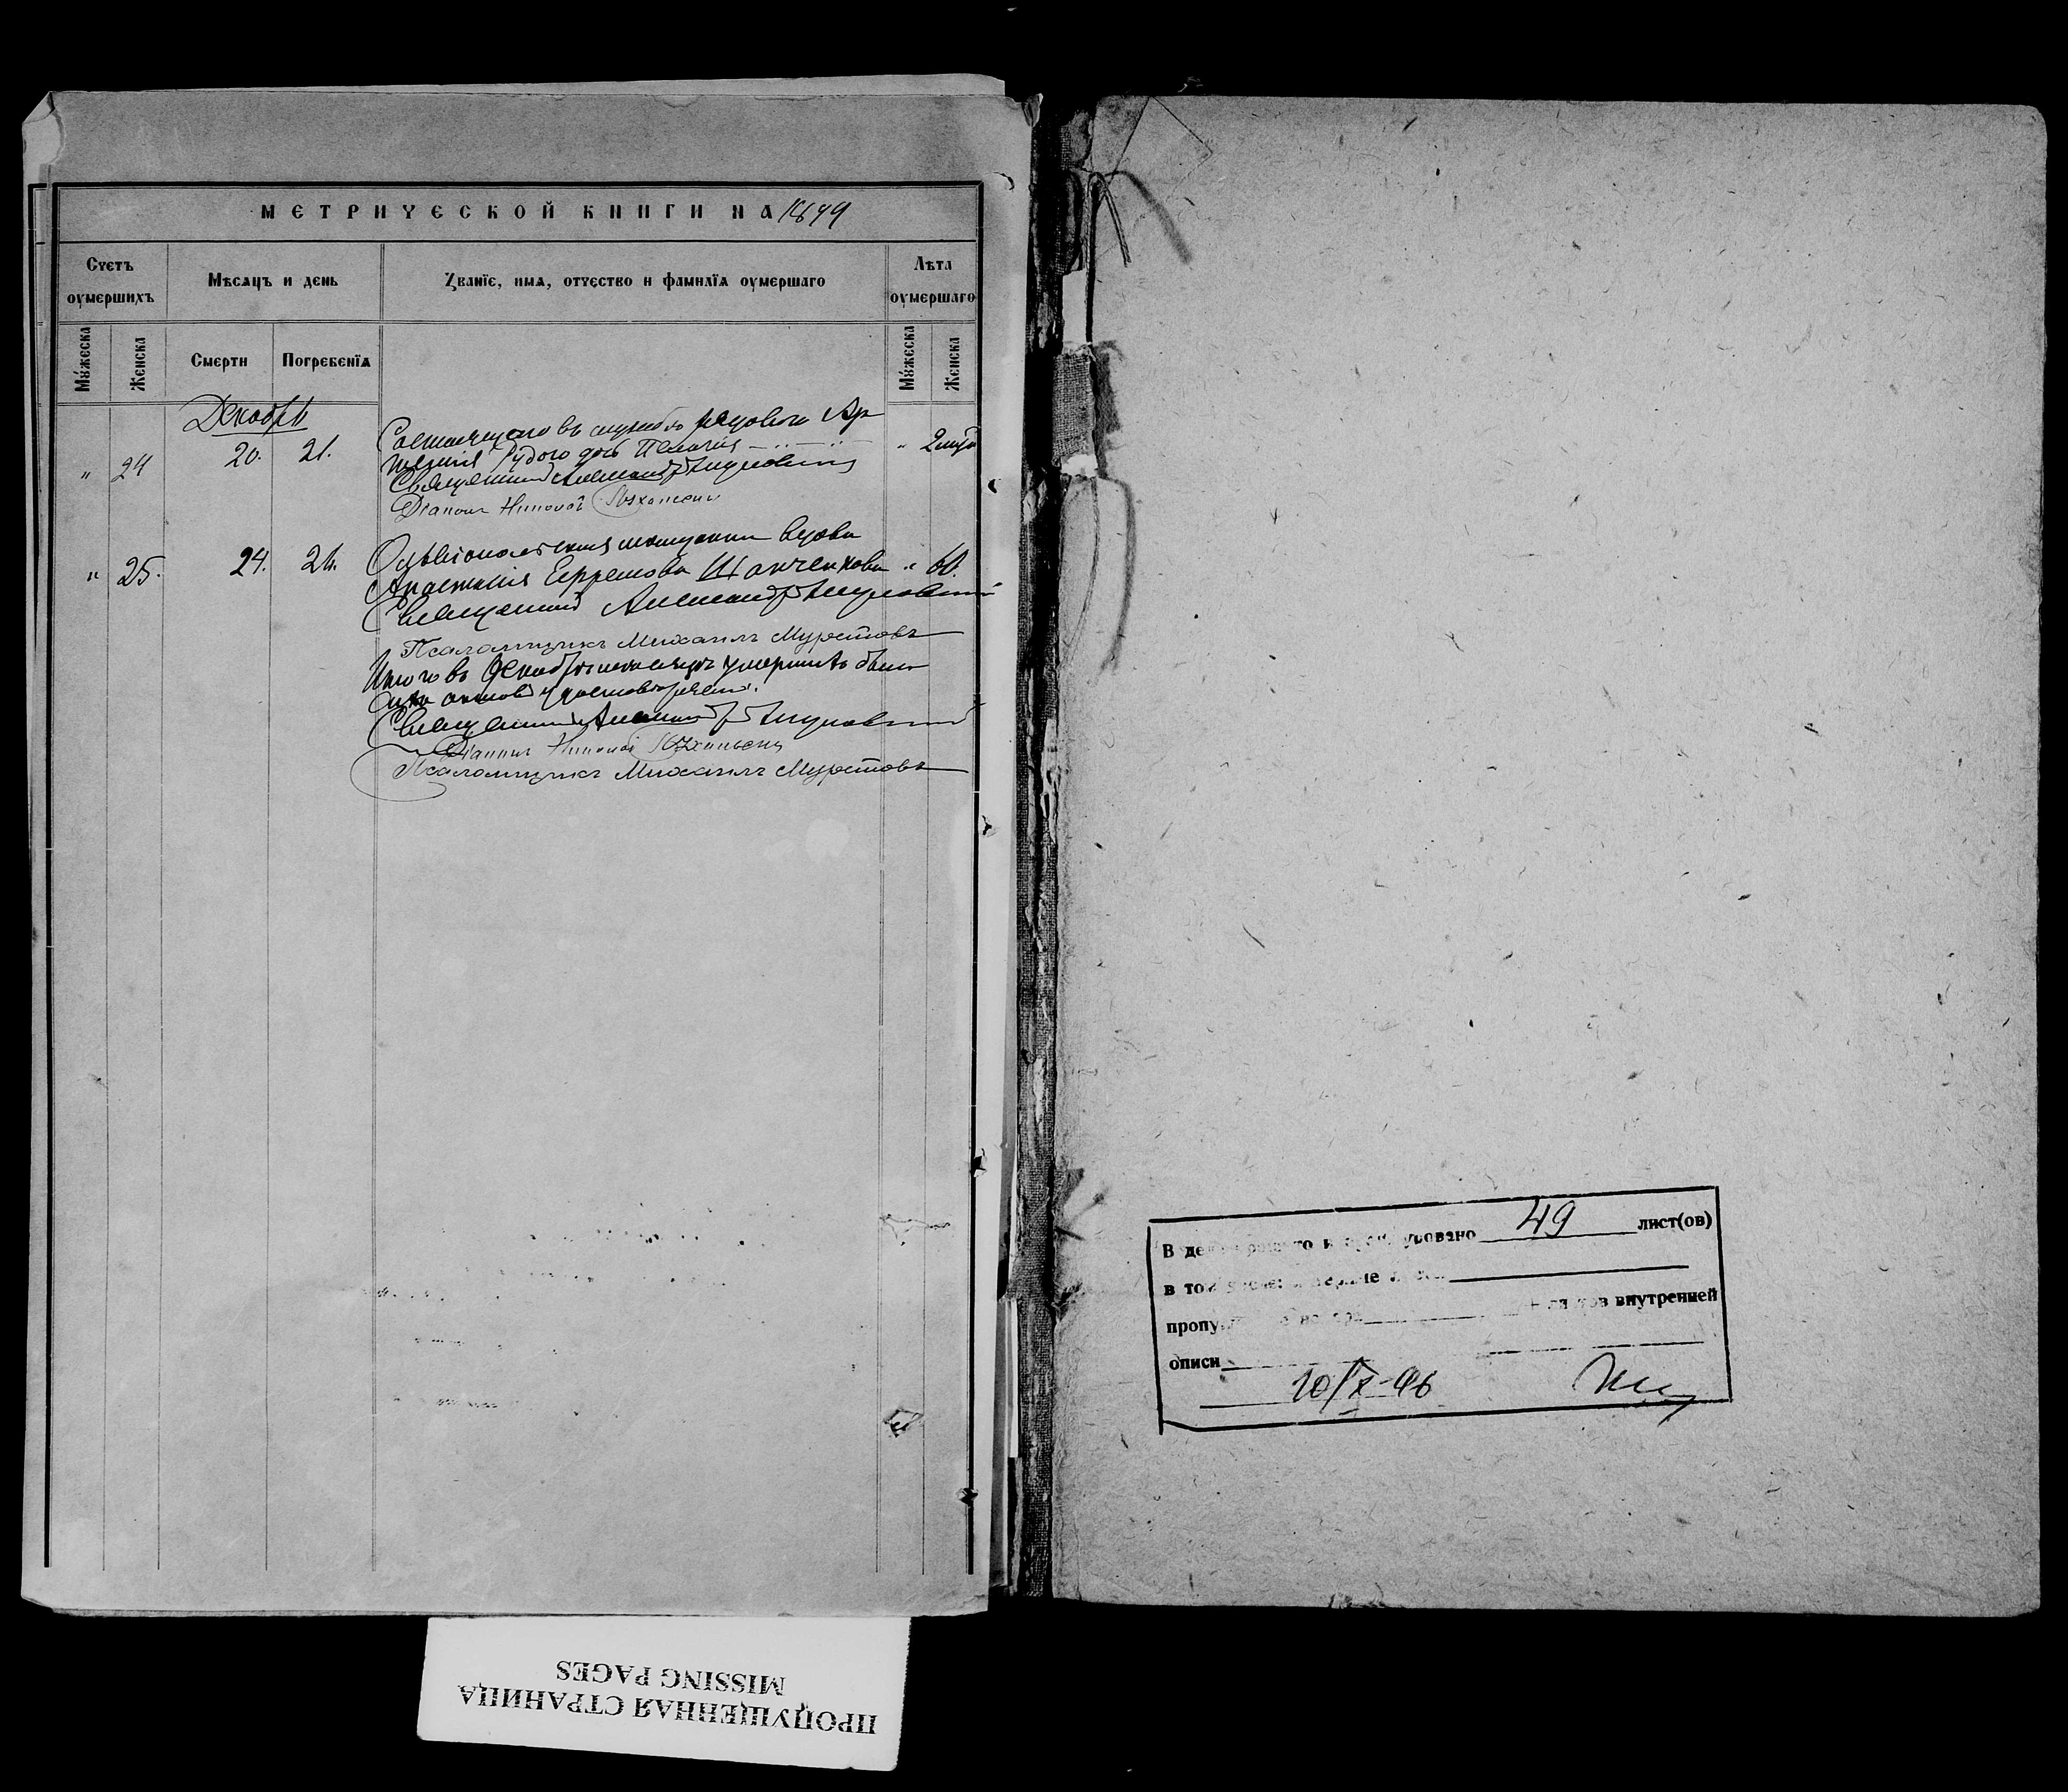 МЕТРИЧЕСКОЙ КНИГИ НА 1899
Счетъ оумершихъ
Мѣсяцъ и день
Званїе, имя, отчество и фамилїя оумершаго
Лѣта оумершаго
Мꙋжеска
Женска
Смерти
Погребенїя
Мꙋжеска
Женска
Декабрь
" 24 20. 21. Состоящаго въ службѣ рядового Ар
темія Рудого дочь Пелагія " 2 мѣс
Священникъ Александръ
Діаконъ Николай
" 25. 24. 26. Овидіопольская мѣщанка вдова
Анастасія Ефремова " 60.
Священникъ Александръ
Псаломщикъ Михаилъ Муретовъ
Итого въ Декабрѣ мѣсяцѣ умершихъ было
Священникъ Александръ
Діаконъ Николай
Псаломщикъ Михаилъ Муретовъ
В де 49 лист(ов)
в том
внутренней
описи
10/X-96
ПРОПУЩЕННАЯ СТРАНИЦА
MISSING PAGES